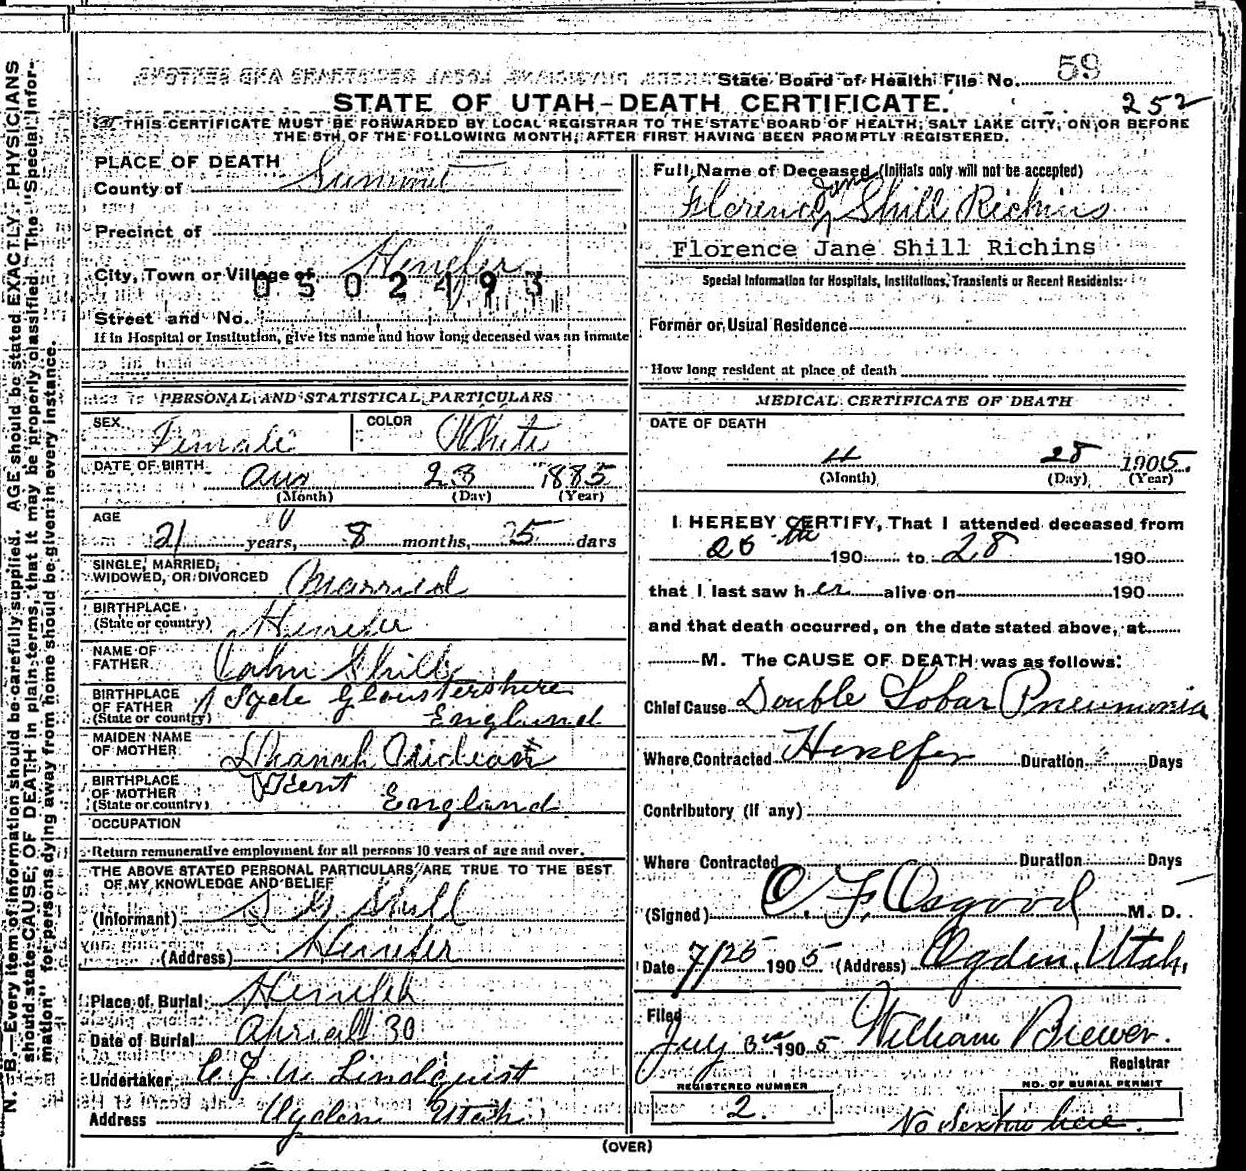 State Board of Health File No. 59
STATE OF UTAH-DEATH CERTIFICATE.
252
THIS CERTIFICATE MUST BE FORWARDED BY LOCAL REGISTRAR TO THE STATE BOARD OF HEALTH, SALT LAKE CITY, ON OR BEFORE
THE 5TH OF THE FOLLOWING MONTH, AFTER FIRST HAVING BEEN PROMPTLY REGISTERED.
PLACE OF DEATH
County of Summit
Precinct of
City, Town or Village of Henefer
0502493
Street and No.
If in Hospital or Institution, give its name and how long deceased was an inmate
PERSONAL AND STATISTICAL PARTICULARS
SEX Female COLOR White
DATE OF BIRTH Aug 23 1885
(Month) (Day) (Year)
AGE
21 years, 8 months, 25 days
SINGLE, MARRIED,
WIDOWED, OR DIVORCED Married
BIRTHPLACE
(State or country) Henefer
NAME OF
FATHER John Shill
BIRTHPLACE
OF FATHER
(State or country) Gloustershire
England
MAIDEN NAME
OF MOTHER
BIRTHPLACE
OF MOTHER Kent
(State or country) England
OCCUPATION
Return remunerative employment for all persons 10 years of age and over.
THE ABOVE STATED PERSONAL PARTICULARS ARE TRUE TO THE BEST
OF MY KNOWLEDGE AND BELIEF
(Informant) Shill
(Address) Henefer
Place of Burial
Date of Burial Aprail 30
Undertaker Lindquist
Address Ogden Utah
Full Name of Deceased (Initials only will not be accepted)
Jane
Florence Shill Richins
Florence Jane Shill Richins
Special Information for Hospitals, Institutions, Transients or Recent Residents:
Former or Usual Residence
How long resident at place of death
MEDICAL CERTIFICATE OF DEATH
DATE OF DEATH
4 28 1905.
(Month) (Day) (Year)
I HEREBY CERTIFY, That I attended deceased from
26th 190 to 28 190
that I last saw her alive on 190
and that death occurred, on the date stated above, at
M. The CAUSE OF DEATH was as follows:
Chief Cause Double Lobar Pneumonia
Where Contracted Henefer Duration Days
Contributory (if any)
Where Contracted Duration Days
(Signed) O. F. Osgood M. D.
Date 7/25 1905 (Address) Ogden, Utah,
Filed
July 3 1905 William Brewer.
Registrar
REGISTERED NUMBER
2.
NO. OF BURIAL PERMIT
No Sexton here.
(OVER)
N. B.—Every item of information should be carefully supplied. AGE should be stated EXACTLY. PHYSICIANS
should state CAUSE OF DEATH in plain terms, that it may be properly classified. The "Special Infor-
mation" for persons dying away from home should be given in every instance.